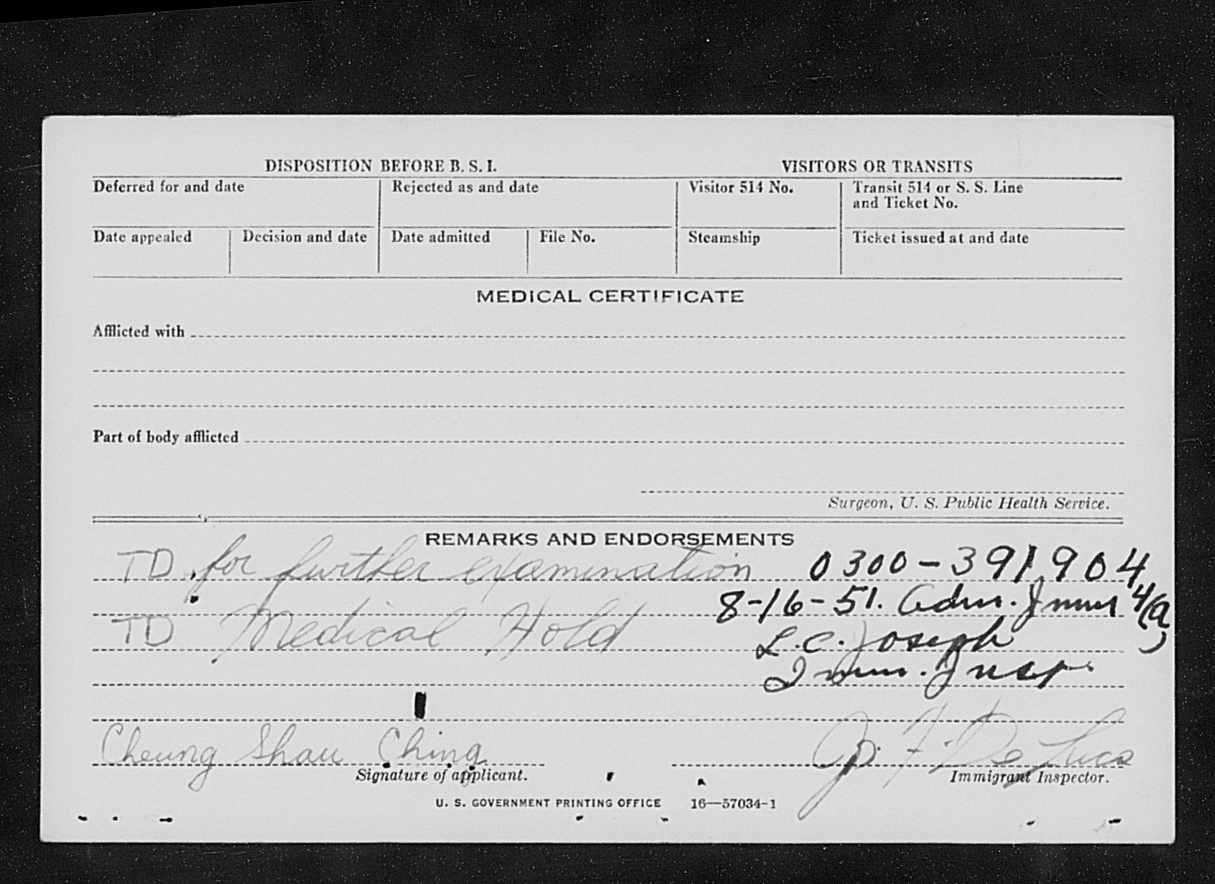 DISPOSITION BEFORE B. S. I. VISITORS OR TRANSITS
Deferred for and date Rejected as and date Visitor 514 No. Transit 514 or S. S. Line
and Ticket No.
Date appealed Decision and date Date admitted File No. Steamship Ticket issued at and date
MEDICAL CERTIFICATE
Afflicted with
Part of body afflicted
Surgeon, U. S. Public Health Service.
REMARKS AND ENDORSEMENTS
TD for further examination 0300-391904
8-16-51. Adm. Imm 4(a)
TD Medical Hold L.C. Joseph
Imm. Insp.
Cheung Shau Ching F. De Luca
Signature of applicant. Immigrant Inspector.
U. S. GOVERNMENT PRINTING OFFICE 16—57034-1